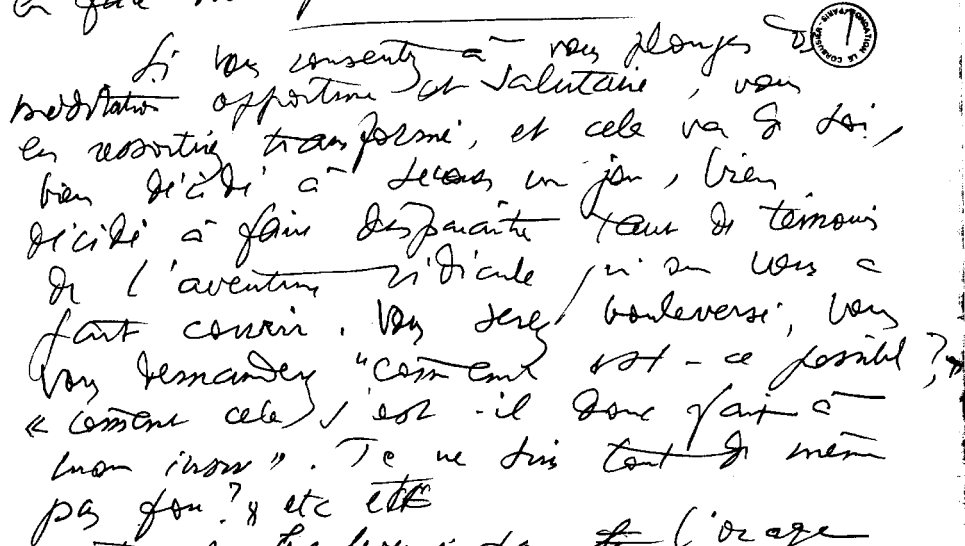 en
FONDATION LE CORBUSIER PARIS
Si vous consentez à vous plonger
méditation opportune et salutaire, vous
en ressortirez transformé, et cela va de soi,
bien décidé à un jour, bien
décidé à faire disparaître tant de témoins
de l'aventure ridicule qu'on vous a
fait courir. Vous serez bouleversé, vous
vous demandez "comment est-ce possible?"
« comment cela s'est-il donc fait à
mon insu ». Je ne suis tout de même
pas fou? » etc etc
l'orage